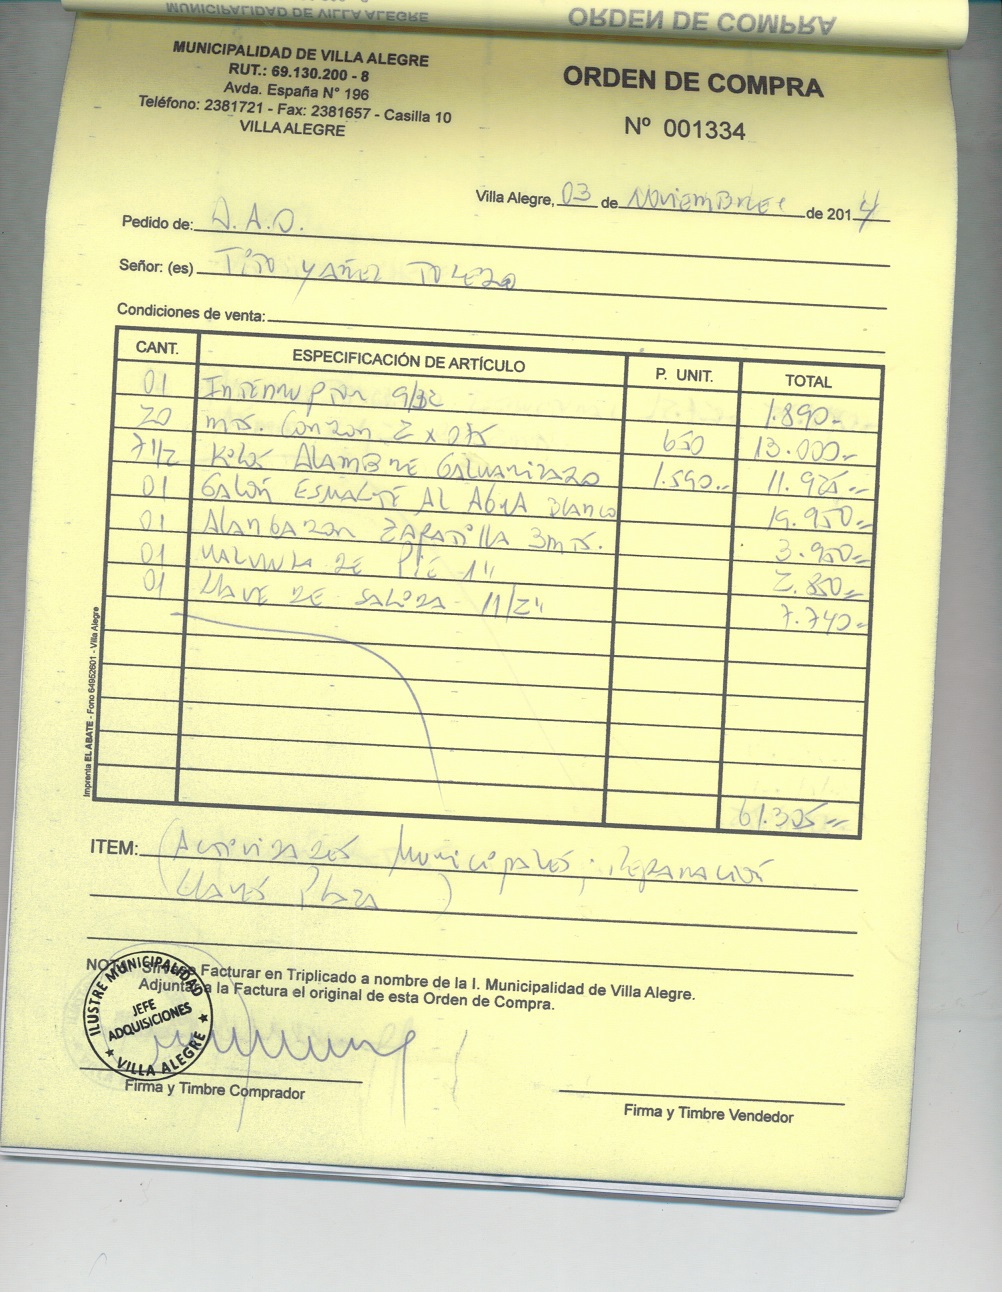 MUNICIPALIDAD DE VILLA ALEGRE
ORDEN DE COMPRA
MUNICIPALIDAD DE VILLA ALEGRE
RUT.: 69.130.200 - 8
Avda. España N° 196
Teléfono: 2381721 - Fax: 2381657 - Casilla 10
VILLA ALEGRE
ORDEN DE COMPRA
Nº 001334
Villa Alegre, 03 de Noviembre de 2014
Pedido de: D.A.O.
Señor: (es) Tito Yañez Toledo
Condiciones de venta:
CANT. ESPECIFICACIÓN DE ARTÍCULO P. UNIT. TOTAL
01 Interruptor 9/32 1.890.-
20 mts. Cordon 2 x 075 650 13.000.-
7 1/2 Kilos Alambre Galvanizado 1.590.- 11.925.-
01 Galón Esmalte Al Agua Blanco 19.950.-
01 Alargador Zapatilla 3 mts. 3.950.-
01 Valvula de Pie 1" 2.850.-
01 Llave de Salida 11/2" 7.740.-
61.305.-
ITEM: (Actividades Municipales; Reparación
Llaves Plaza)
NOTA: Sírvase Facturar en Triplicado a nombre de la I. Municipalidad de Villa Alegre.
Adjuntar a la Factura el original de esta Orden de Compra.
ILUSTRE MUNICIPALIDAD
JEFE
ADQUISICIONES
VILLA ALEGRE
Firma y Timbre Comprador
Firma y Timbre Vendedor
Imprenta EL ABATE - Fono 64952601 - Villa Alegre